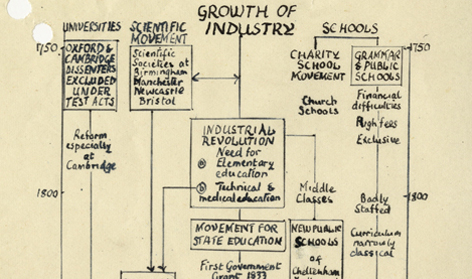 GROWTH OF
INDUSTRY
UNIVERSITIES
SCIENTIFIC
MOVEMENT
SCHOOLS
1750
OXFORD &
CAMBRIDGE
DISSENTERS
EXCLUDED
UNDER
TEST ACTS
Scientific
Societies at
Birmingham
Manchester
Newcastle
Bristol
CHARITY
SCHOOL
MOVEMENT
GRAMMAR
& PUBLIC
SCHOOLS
1750
Church
Schools
Financial
difficulties
High fees
Exclusive
Reform
especially
at
Cambridge
INDUSTRIAL
REVOLUTION
Need for
a Elementary
education
b Technical &
medical education
1800
Middle
Classes
Badly
Staffed
1800
MOVEMENT FOR
STATE EDUCATION
NEW PUBLIC
SCHOOLS
of
Cheltenham
Curriculum
narrowly
classical
First Government
Grant 1833